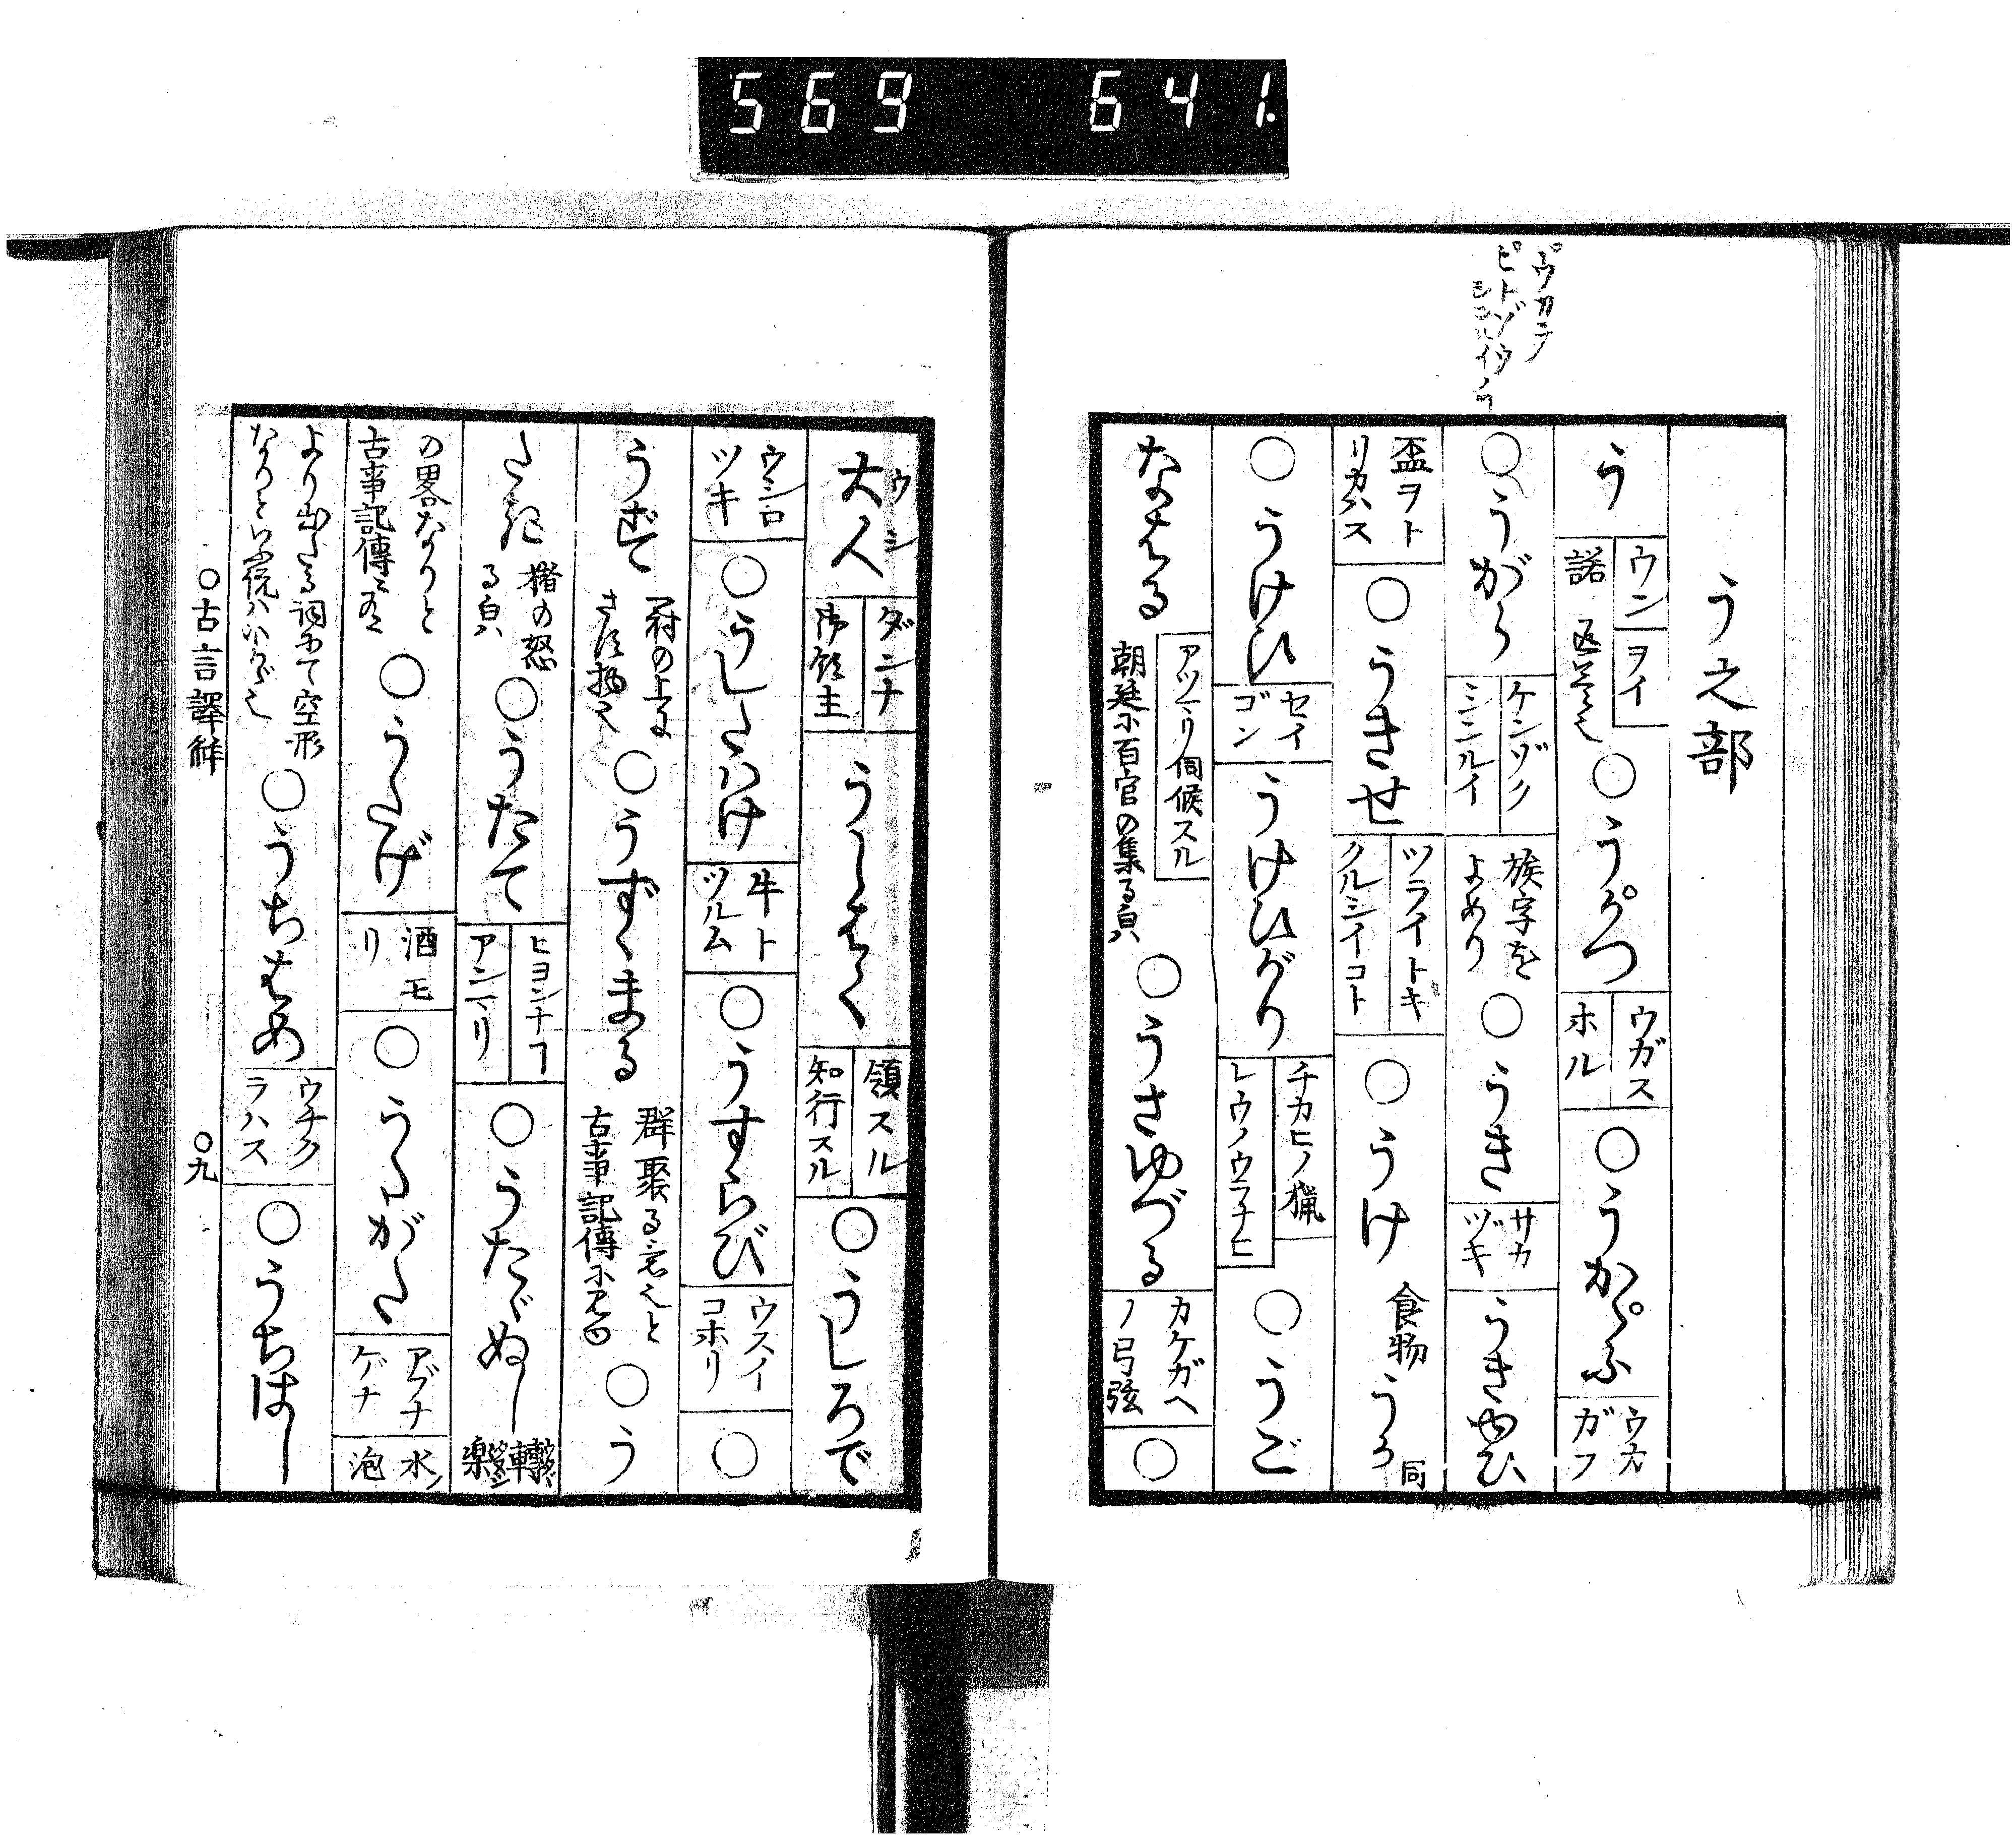 569 641.
ウカラ
ピトゾウ
シンルイノヿ
う之部
う ウン ヲイ 諾 返答也 ○うかつ ウガス ホル ○うかゝふ ウカガフ
○うがら ケンゾク シンルイ 族字をよめり ○うき サカヅキ うきゆひ
盃ヲトリカハス ○うきせ ツライトキ クルシイコト ○うけ 食物 うか 同
○うけひ セイゴン うけひがり チカヒノ猟 レウノウラナヒ ○うご
なはる アツマリ伺候スル 朝廷に百官の集る皃 ○うさゆづる カケガヘノ弓弦 ○
大人 ウシ ダンナ 御領主 うしはく 領スル 知行スル ○うしろで
ウシロツキ ○うしたはけ 牛トツルム ○うすらび ウスイコホリ ○
うず 冠の上にさす物也 ○うずくまる 群聚る意也と古事記傳に見ゆ ○う
たき 猪の怒る皃 ○うたて ヒヨンナヿ アンマリ ○うたゞぬし 轉楽
の畧なりと古事記傳に有 ○うたげ 酒モリ ○うたがた アブナゲナ 水ノ泡
より出たる詞にて空形なりといふ説ハいかゞ也 ○うちはめ ウチクラハス ○うちはし
○古言譯解 ○九